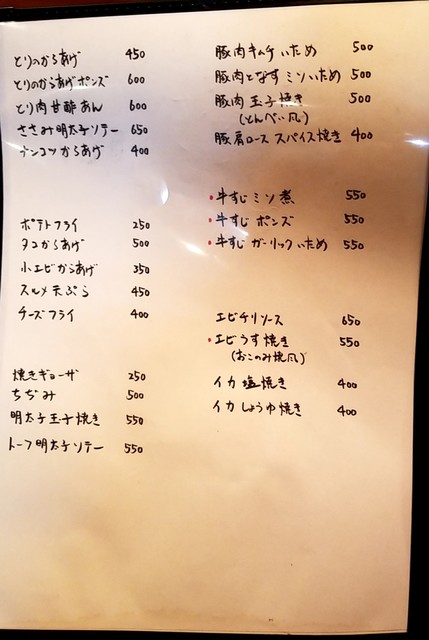 とりのからあげ 450
とりのからあげポンズ 600
とり肉甘酢あん 600
ささみ明太子ソテー 650
ナンコツからあげ 400
ポテトフライ 250
タコからあげ 500
小エビからあげ 350
スルメ天ぷら 450
チーズフライ 400
焼きギョーザ 250
ちぢみ 500
明太子玉子焼き 550
トーフ明太子ソテー 550
豚肉キムチいため 500
豚肉となすミソいため 500
豚肉玉子焼き 500
(とんぺい風)
豚肩ローススパイス焼き 400
牛すじミソ煮 550
牛すじポンズ 550
牛すじガーリックいため 550
エビチリソース 650
エビうす焼き 550
(おこのみ焼風)
イカ塩焼き 400
イカしょうゆ焼き 400